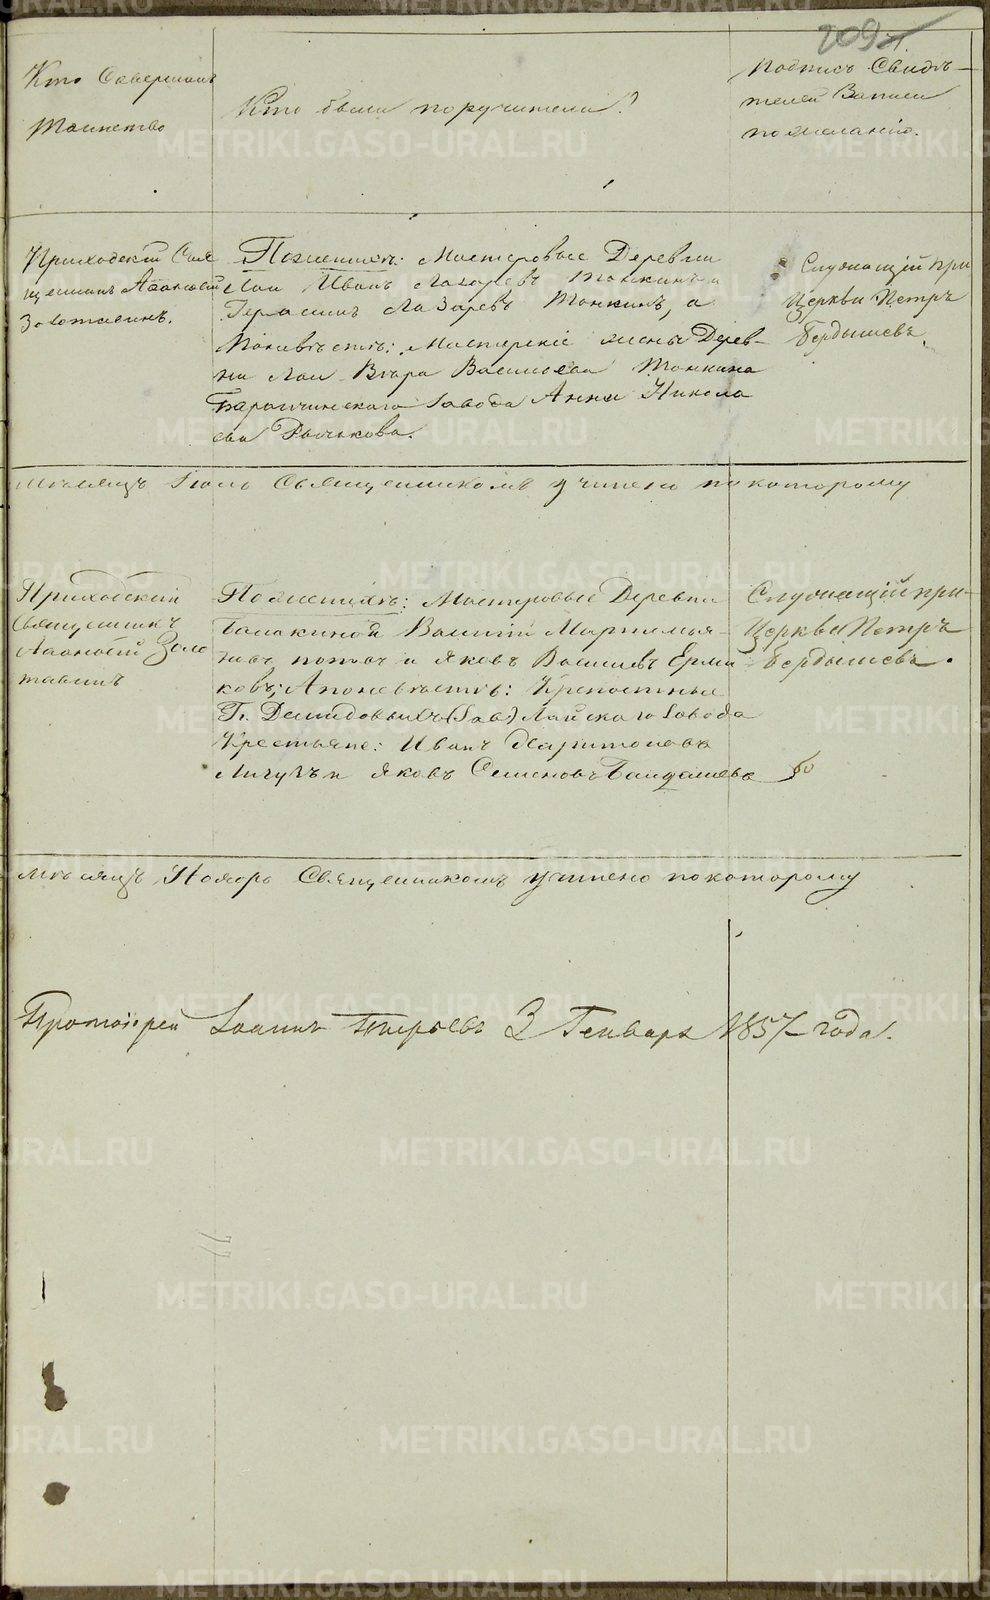 209
Кто Совершалъ
Таинство
Кто были поручители?
Подпись Свидѣ-
телей Записи
по желанію.
Приходскій Свя
щенникъ
Золотавинъ.
По женихѣ: Мастеровые Деревни
Лаи Иванъ Лазаревъ Тонкинъ и
Герасимъ Лазаревъ Тонкинъ, а
По невѣстѣ: Мастерскіе жены Дерев-
ни Лаи Вѣра Васильева Тонкина
Баранчинскаго Завода Анна Никола
ева Рычкова.
Служащій при
Церкви Петръ
Бердышевъ.
Мѣсяцъ Священникомъ учинено по которому
Приходскій
Священникъ
Золо
тавинъ
По женихѣ: Мастеровые Деревни
Балакиной Василій Мартемья-
новъ и Яковъ Васильевъ Ерма
ковъ; А по невѣстѣ: Крепостные
Г. Демидовыхъ Лайскаго Завода
Крестьяне: Иванъ Харитоновъ
и Яковъ Семеновъ
Служащій при-
Церкви Петръ
Бердышевъ.
Мѣсяцъ Ноябрь Священникомъ учинено по которому
Протоіерей Іоаннъ 3 Генваря 1857 года.
METRIKI.GASO-URAL.RU